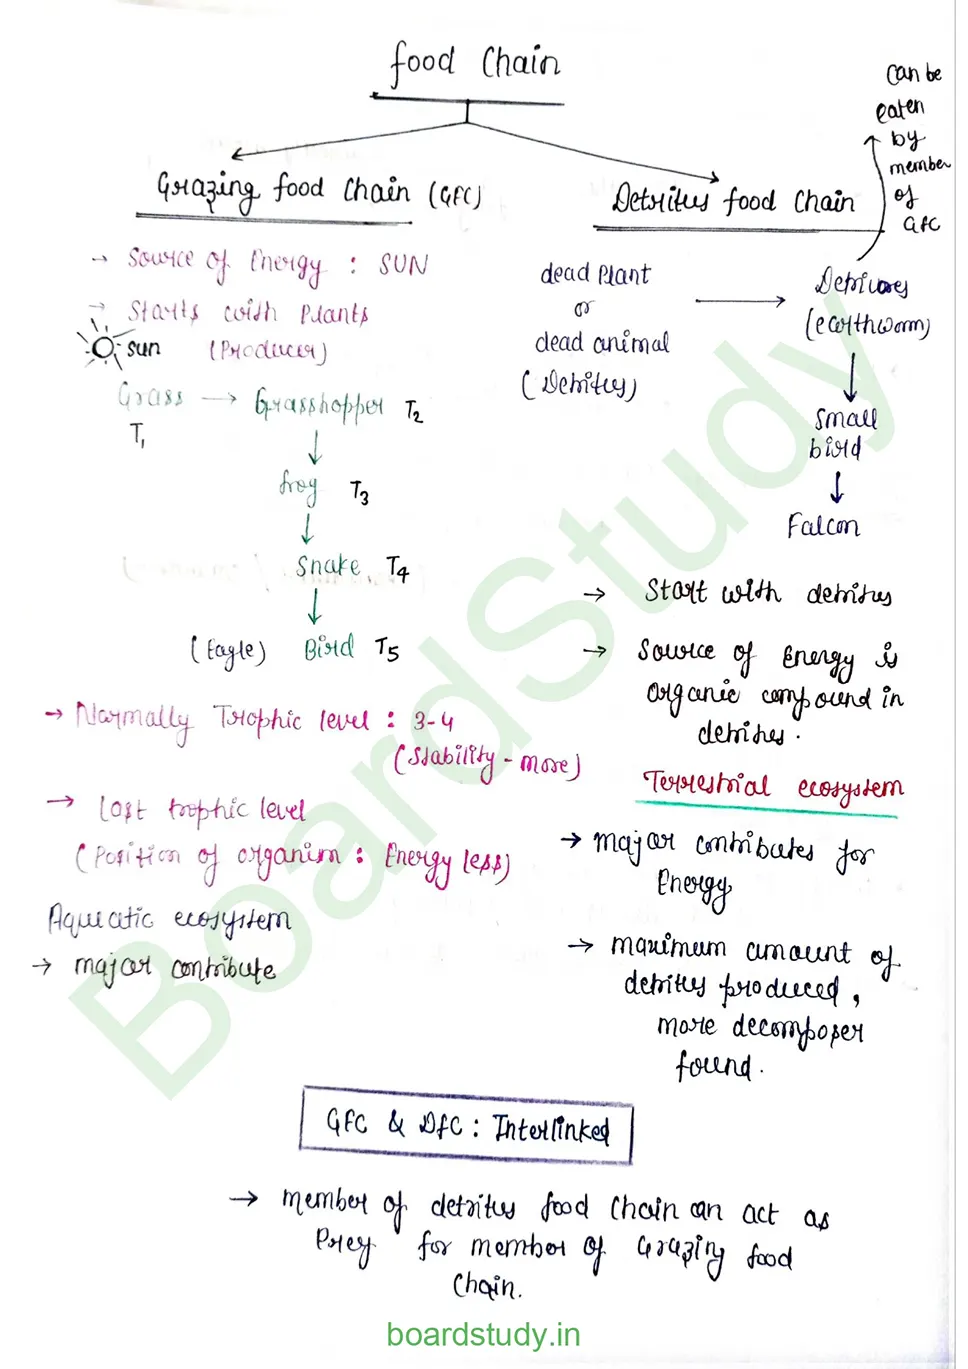 food Chain
Grazing food Chain (GFC)
→ Source of Energy : SUN
→ Starts with Plants
sun (Producer)
Grass → Grasshopper T2
T1
↓
frog T3
↓
Snake T4
↓
(Eagle) Bird T5
→ Normally Trophic level : 3-4
(Stability - more)
→ Last trophic level
(Position of organism : Energy less)
Aquatic ecosystem
→ major contribute
Detritus food Chain
can be
eaten
by
member
of
GFC
dead Plant
or
dead animal
(Detritus)
→ Detrivores
(earthworm)
↓
Small
bird
↓
Falcon
→ Start with detritus
→ Source of Energy is
Organic compound in
detritus.
Terrestrial ecosystem
→ major contributes for
Energy
→ maximum amount of
detritus produced,
more decomposer
found.
GFC & DFC : Interlinked
→ member of detritus food Chain can act as
Prey for member of Grazing food
Chain.
BoardStudy
boardstudy.in